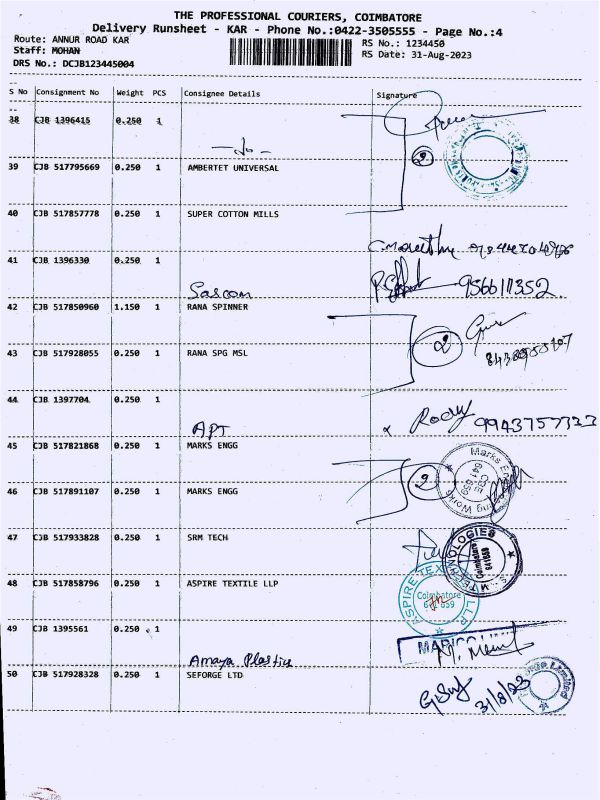 THE PROFESSIONAL COURIERS, COIMBATORE
Delivery Runsheet - KAR - Phone No.:0422-3505555 - Page No.:4
Route: ANNUR ROAD KAR
RS No.: 1234450
Staff: MOHAN
RS Date: 31-Aug-2023
DRS No.: DCJB123445004
S No Consignment No Weight PCS Consignee Details Signature
38 CJB 1396415 0.250 1
39 CJB 517795669 0.250 1 AMBERTET UNIVERSAL
2
40 CJB 517857778 0.250 1 SUPER COTTON MILLS
41 CJB 1396330 0.250 1
Sascom
9566111352
42 CJB 517850960 1.150 1 RANA SPINNER
2
43 CJB 517928055 0.250 1 RANA SPG MSL
44 CJB 1397704 0.250 1
APT
9943757323
45 CJB 517821868 0.250 1 MARKS ENGG
2
Marks Engineering Works
COIMBATORE
641 659
46 CJB 517891107 0.250 1 MARKS ENGG
47 CJB 517933828 0.250 1 SRM TECH
SRM TECHNOLOGIES
Coimbatore
641659
48 CJB 517858796 0.250 1 ASPIRE TEXTILE LLP
ASPIRE TEXTILE LLP
Coimbatore
641 659
49 CJB 1395561 0.250 1
Amaya Plastics
50 CJB 517928328 0.250 1 SEFORGE LTD
31/8/23